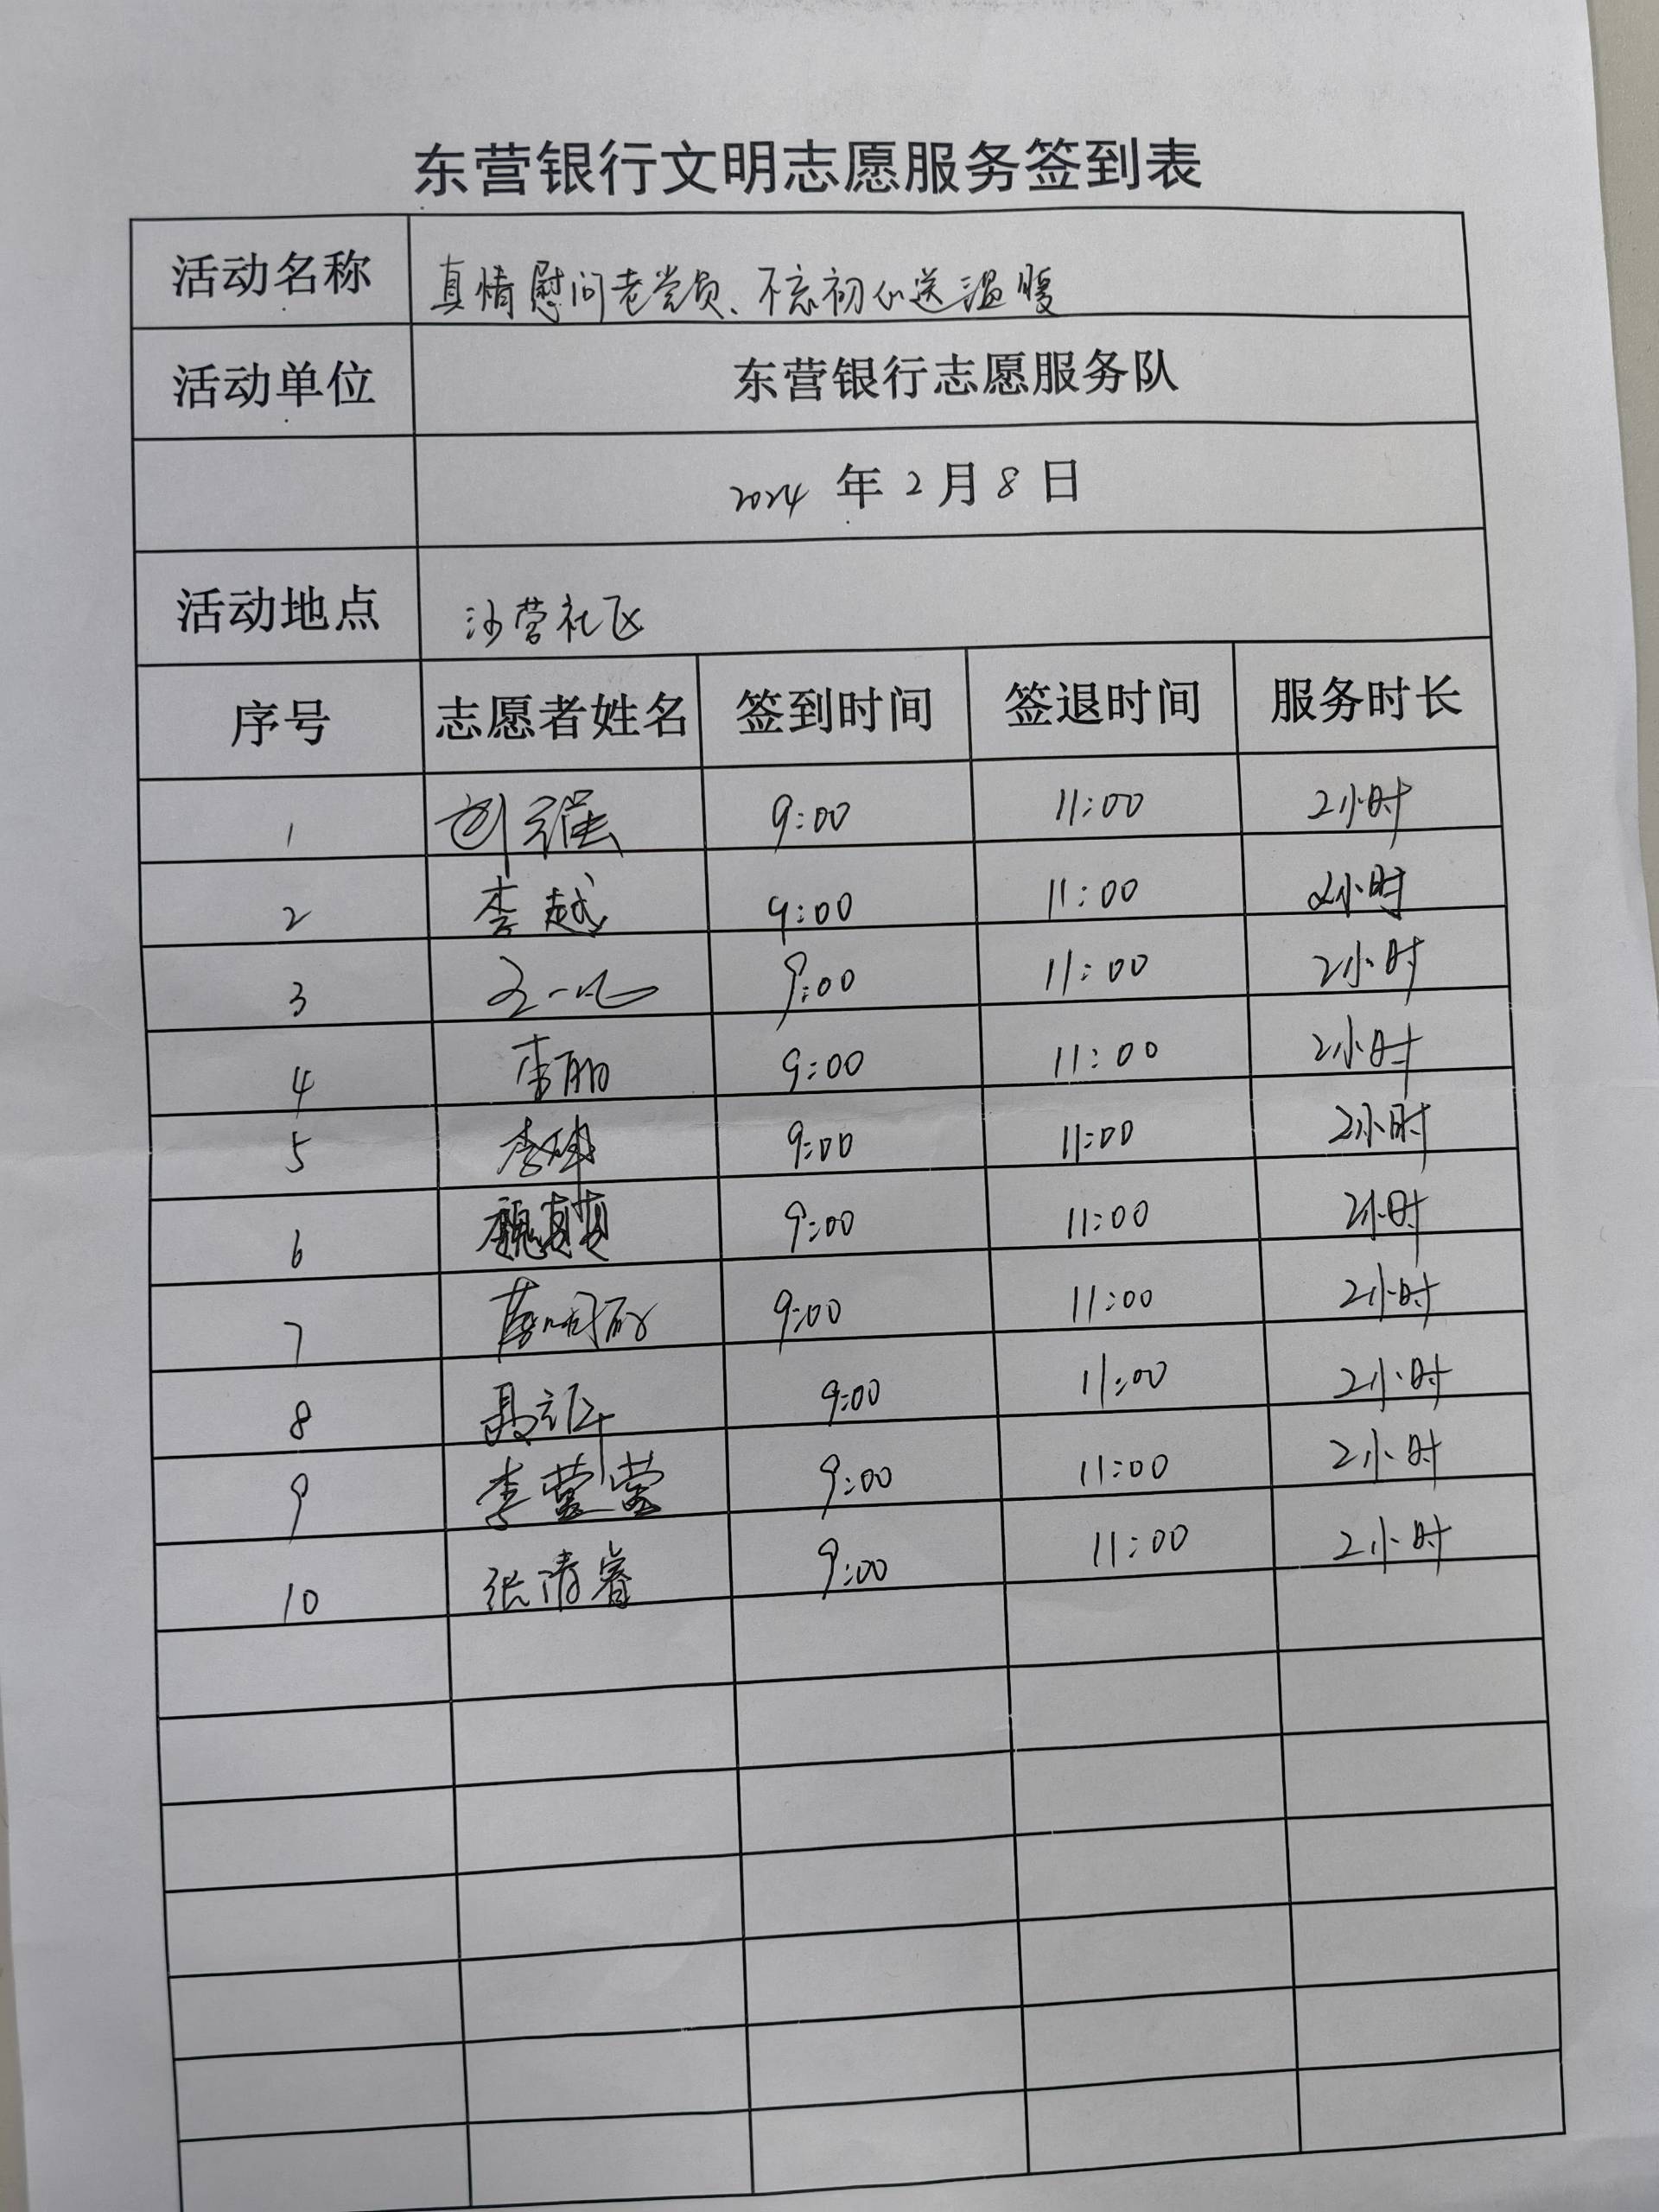 东营银行文明志愿服务签到表
活动名称 真情慰问老党员、不忘初心送温暖
活动单位 东营银行志愿服务队
2024 年 2 月 8 日
活动地点 沙营社区
序号 志愿者姓名 签到时间 签退时间 服务时长
1 刘强 9:00 11:00 2小时
2 李越 9:00 11:00 2小时
3 9:00 11:00 2小时
4 李丽 9:00 11:00 2小时
5 9:00 11:00 2小时
6 9:00 11:00 2小时
7 9:00 11:00 2小时
8 9:00 11:00 2小时
9 李莹莹 9:00 11:00 2小时
10 张清睿 9:00 11:00 2小时